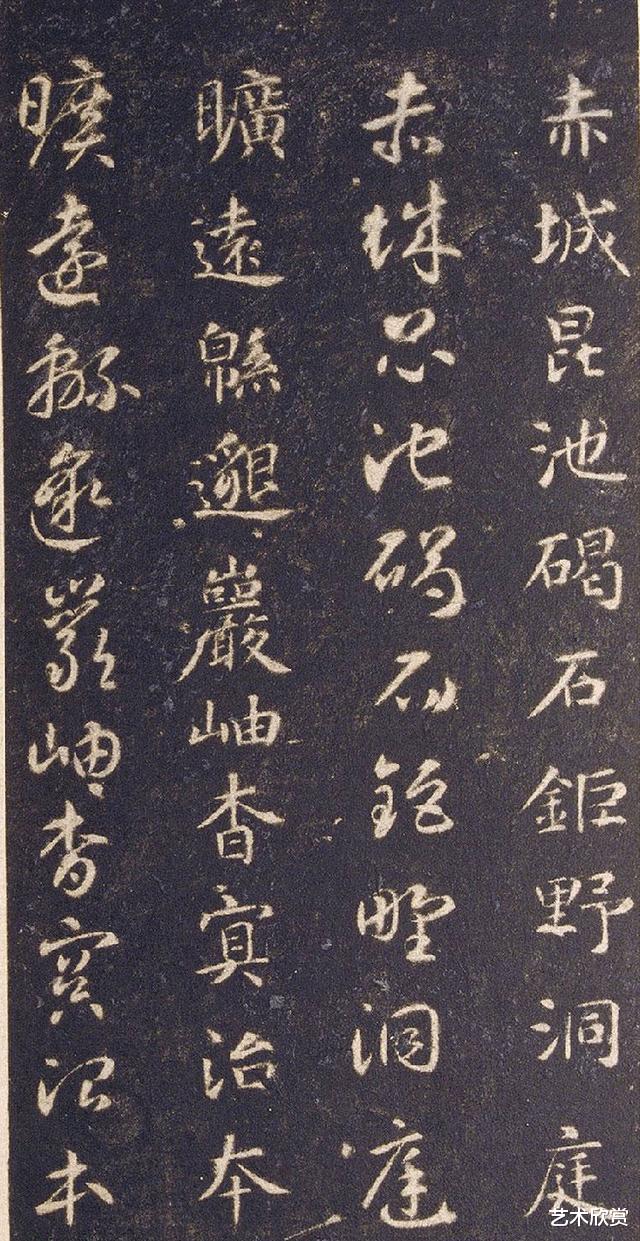 赤城昆池碣石鉅野洞庭
赤城昆池碣石鉅野洞庭
曠遠緜邈巖岫杳冥治本
曠遠緜邈巖岫杳冥治本
艺术欣赏